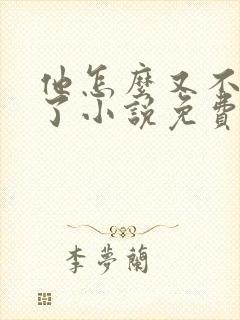 他怎麼又不
了小說免費
李夢蘭